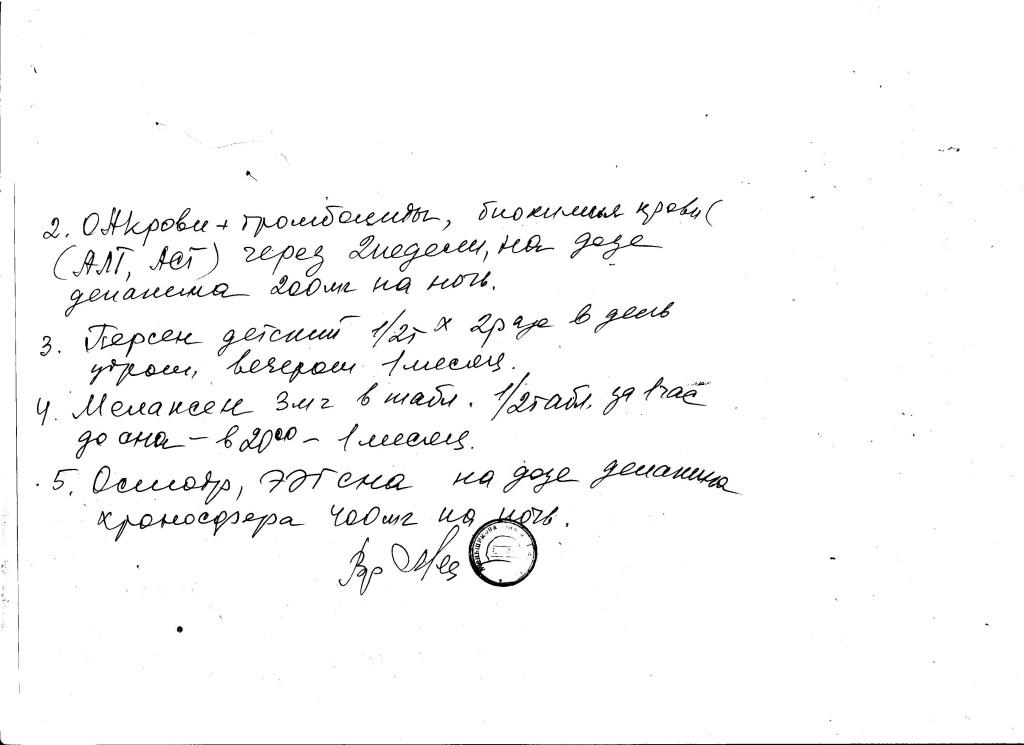 2. ОАкрови + тромбоциты, биохимия крови (
(АЛТ, АСТ) через 2 недели, на дозе
депакина 200мг на ночь.
3. Персен детский 1/2т х 2 раза в день
утром, вечером 1 месяц.
4. Мелаксен 3мг в табл. 1/2 табл. за 1 час
до сна – в 20⁰⁰ – 1 месяц.
5. Осмотр, ЭЭГ сна на дозе депакина
хроносфера 400мг на ночь.
Вр